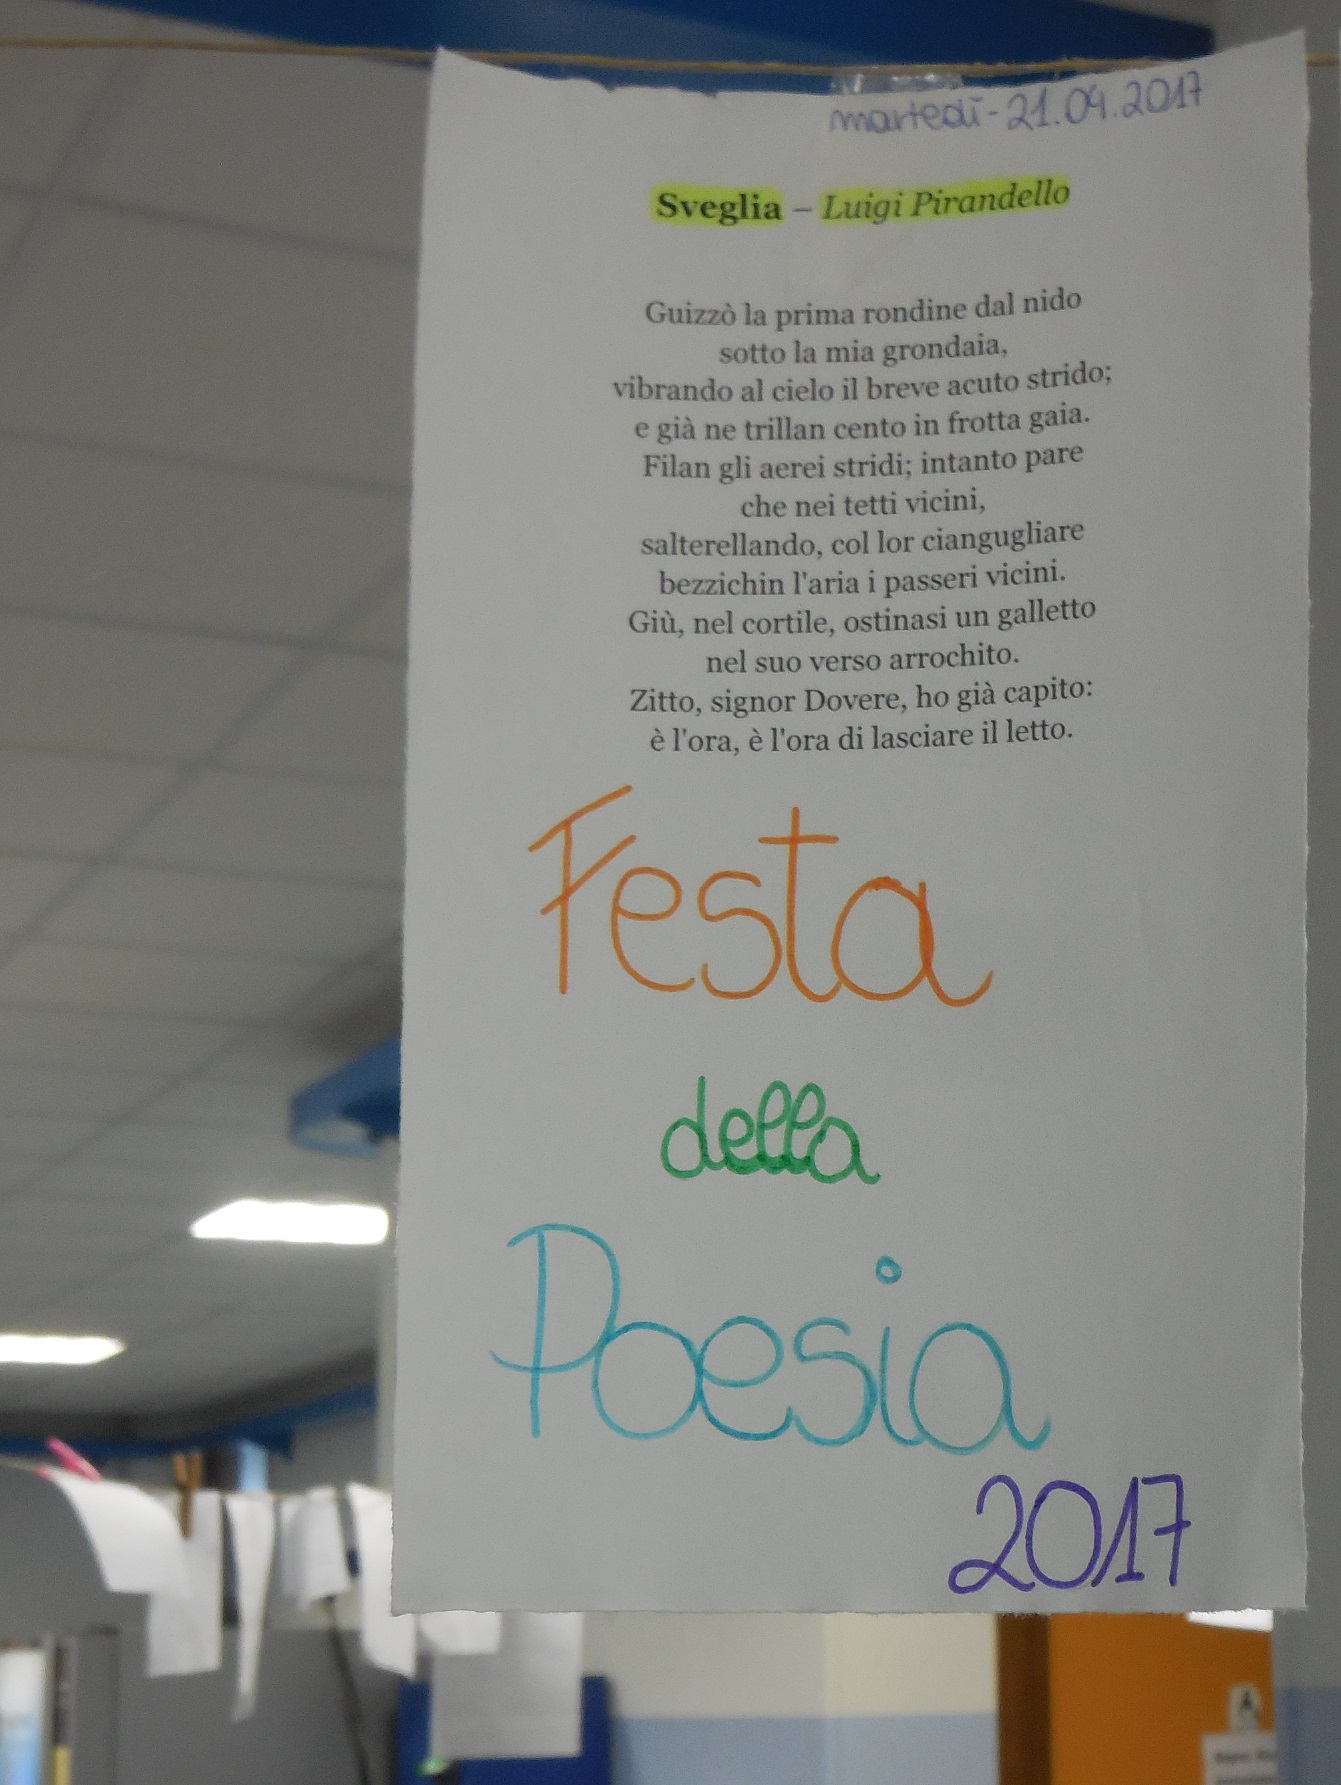 martedì-21.04.2017
Sveglia – Luigi Pirandello
Guizzò la prima rondine dal nido
sotto la mia grondaia,
vibrando al cielo il breve acuto strido;
e già ne trillan cento in frotta gaia.
Filan gli aerei stridi; intanto pare
che nei tetti vicini,
salterellando, col lor ciangugliare
bezzichin l'aria i passeri vicini.
Giù, nel cortile, ostinasi un galletto
nel suo verso arrochito.
Zitto, signor Dovere, ho già capito:
è l'ora, è l'ora di lasciare il letto.
Festa
della
Poesia
2017
A